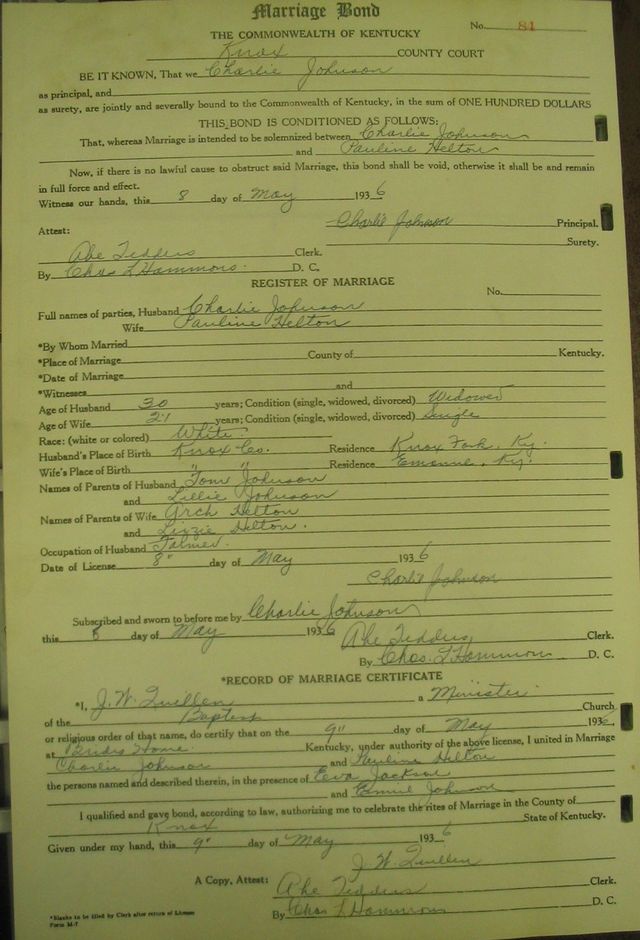 Marriage Bond
No. 81
THE COMMONWEALTH OF KENTUCKY
Knox COUNTY COURT
BE IT KNOWN, That we Charlie Johnson
as principal, and
as surety, are jointly and severally bound to the Commonwealth of Kentucky, in the sum of ONE HUNDRED DOLLARS
THIS BOND IS CONDITIONED AS FOLLOWS:
That, whereas Marriage is intended to be solemnized between Charlie Johnson
and Pauline Helton
Now, if there is no lawful cause to obstruct said Marriage, this bond shall be void, otherwise it shall be and remain
in full force and effect.
Witness our hands, this 8 day of May 1936
Charlie Johnson Principal.
Attest: Surety.
Abe Tedders Clerk.
By Chas L Hammons. D. C.
REGISTER OF MARRIAGE
No.
Full names of parties, Husband Charlie Johnson
Wife Pauline Helton
*By Whom Married
*Place of Marriage County of Kentucky.
*Date of Marriage
*Witnesses and
Age of Husband 30 years; Condition (single, widowed, divorced) Widowed
Age of Wife 21 years; Condition (single, widowed, divorced) Single
Race: (white or colored) White.
Husband's Place of Birth Knox Co. Residence Knox Fork, Ky.
Wife's Place of Birth " " Residence Emanuel, Ky.
Names of Parents of Husband Tom Johnson
and Lillie Johnson
Names of Parents of Wife Arch Helton
and Lizzie Helton.
Occupation of Husband Farmer.
Date of License 8" day of May 1936
Charlie Johnson
Subscribed and sworn to before me by Charlie Johnson
this 8 day of May 1936 Abe Tedders Clerk.
By Chas. L Hammons D. C.
*RECORD OF MARRIAGE CERTIFICATE
*I, J. W. Quillen a Minister
of the Baptist Church
or religious order of that name, do certify that on the 9" day of May 1936,
at Brides Home. Kentucky, under authority of the above license, I united in Marriage
Charlie Johnson and Pauline Helton
the persons named and described therein, in the presence of Eeva Jackson
and Johnson
I qualified and gave bond, according to law, authorizing me to celebrate the rites of Marriage in the County of
Knox State of Kentucky.
Given under my hand, this 9" day of May 1936
J. W. Quillen
A Copy, Attest: Abe Tedders Clerk.
By Chas L Hammons D. C.
*Blanks to be filled by Clerk after return of License
Form M-7